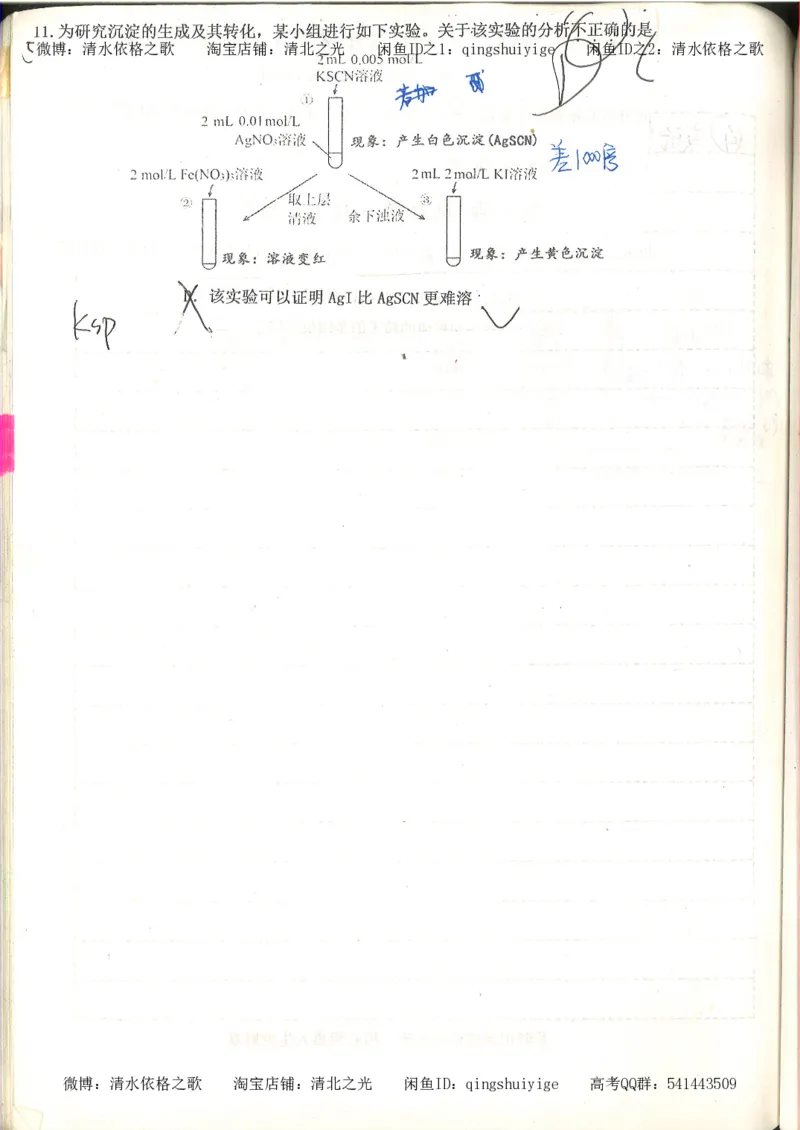 11.为研究沉淀的生成及其转化，某小组进行如下实验。关于该实验的分析不正确的是
微博：清水依格之歌 淘宝店铺：清北之光 闲鱼ID之1：qingshuiyige 闲鱼ID之2：清水依格之歌
2mL 0.005 mol/L
KSCN溶液
①
2 mL 0.01mol/L
AgNO₃溶液
现象：产生白色沉淀(AgSCN)
差1000倍
2 mol/L Fe(NO₃)₃溶液
2mL 2mol/L KI溶液
②
取上层
清液
余下浊液
③
现象：溶液变红
现象：产生黄色沉淀
D. 该实验可以证明 AgI 比 AgSCN 更难溶
Ksp
微博：清水依格之歌 淘宝店铺：清北之光 闲鱼ID：qingshuiyige 高考QQ群：541443509